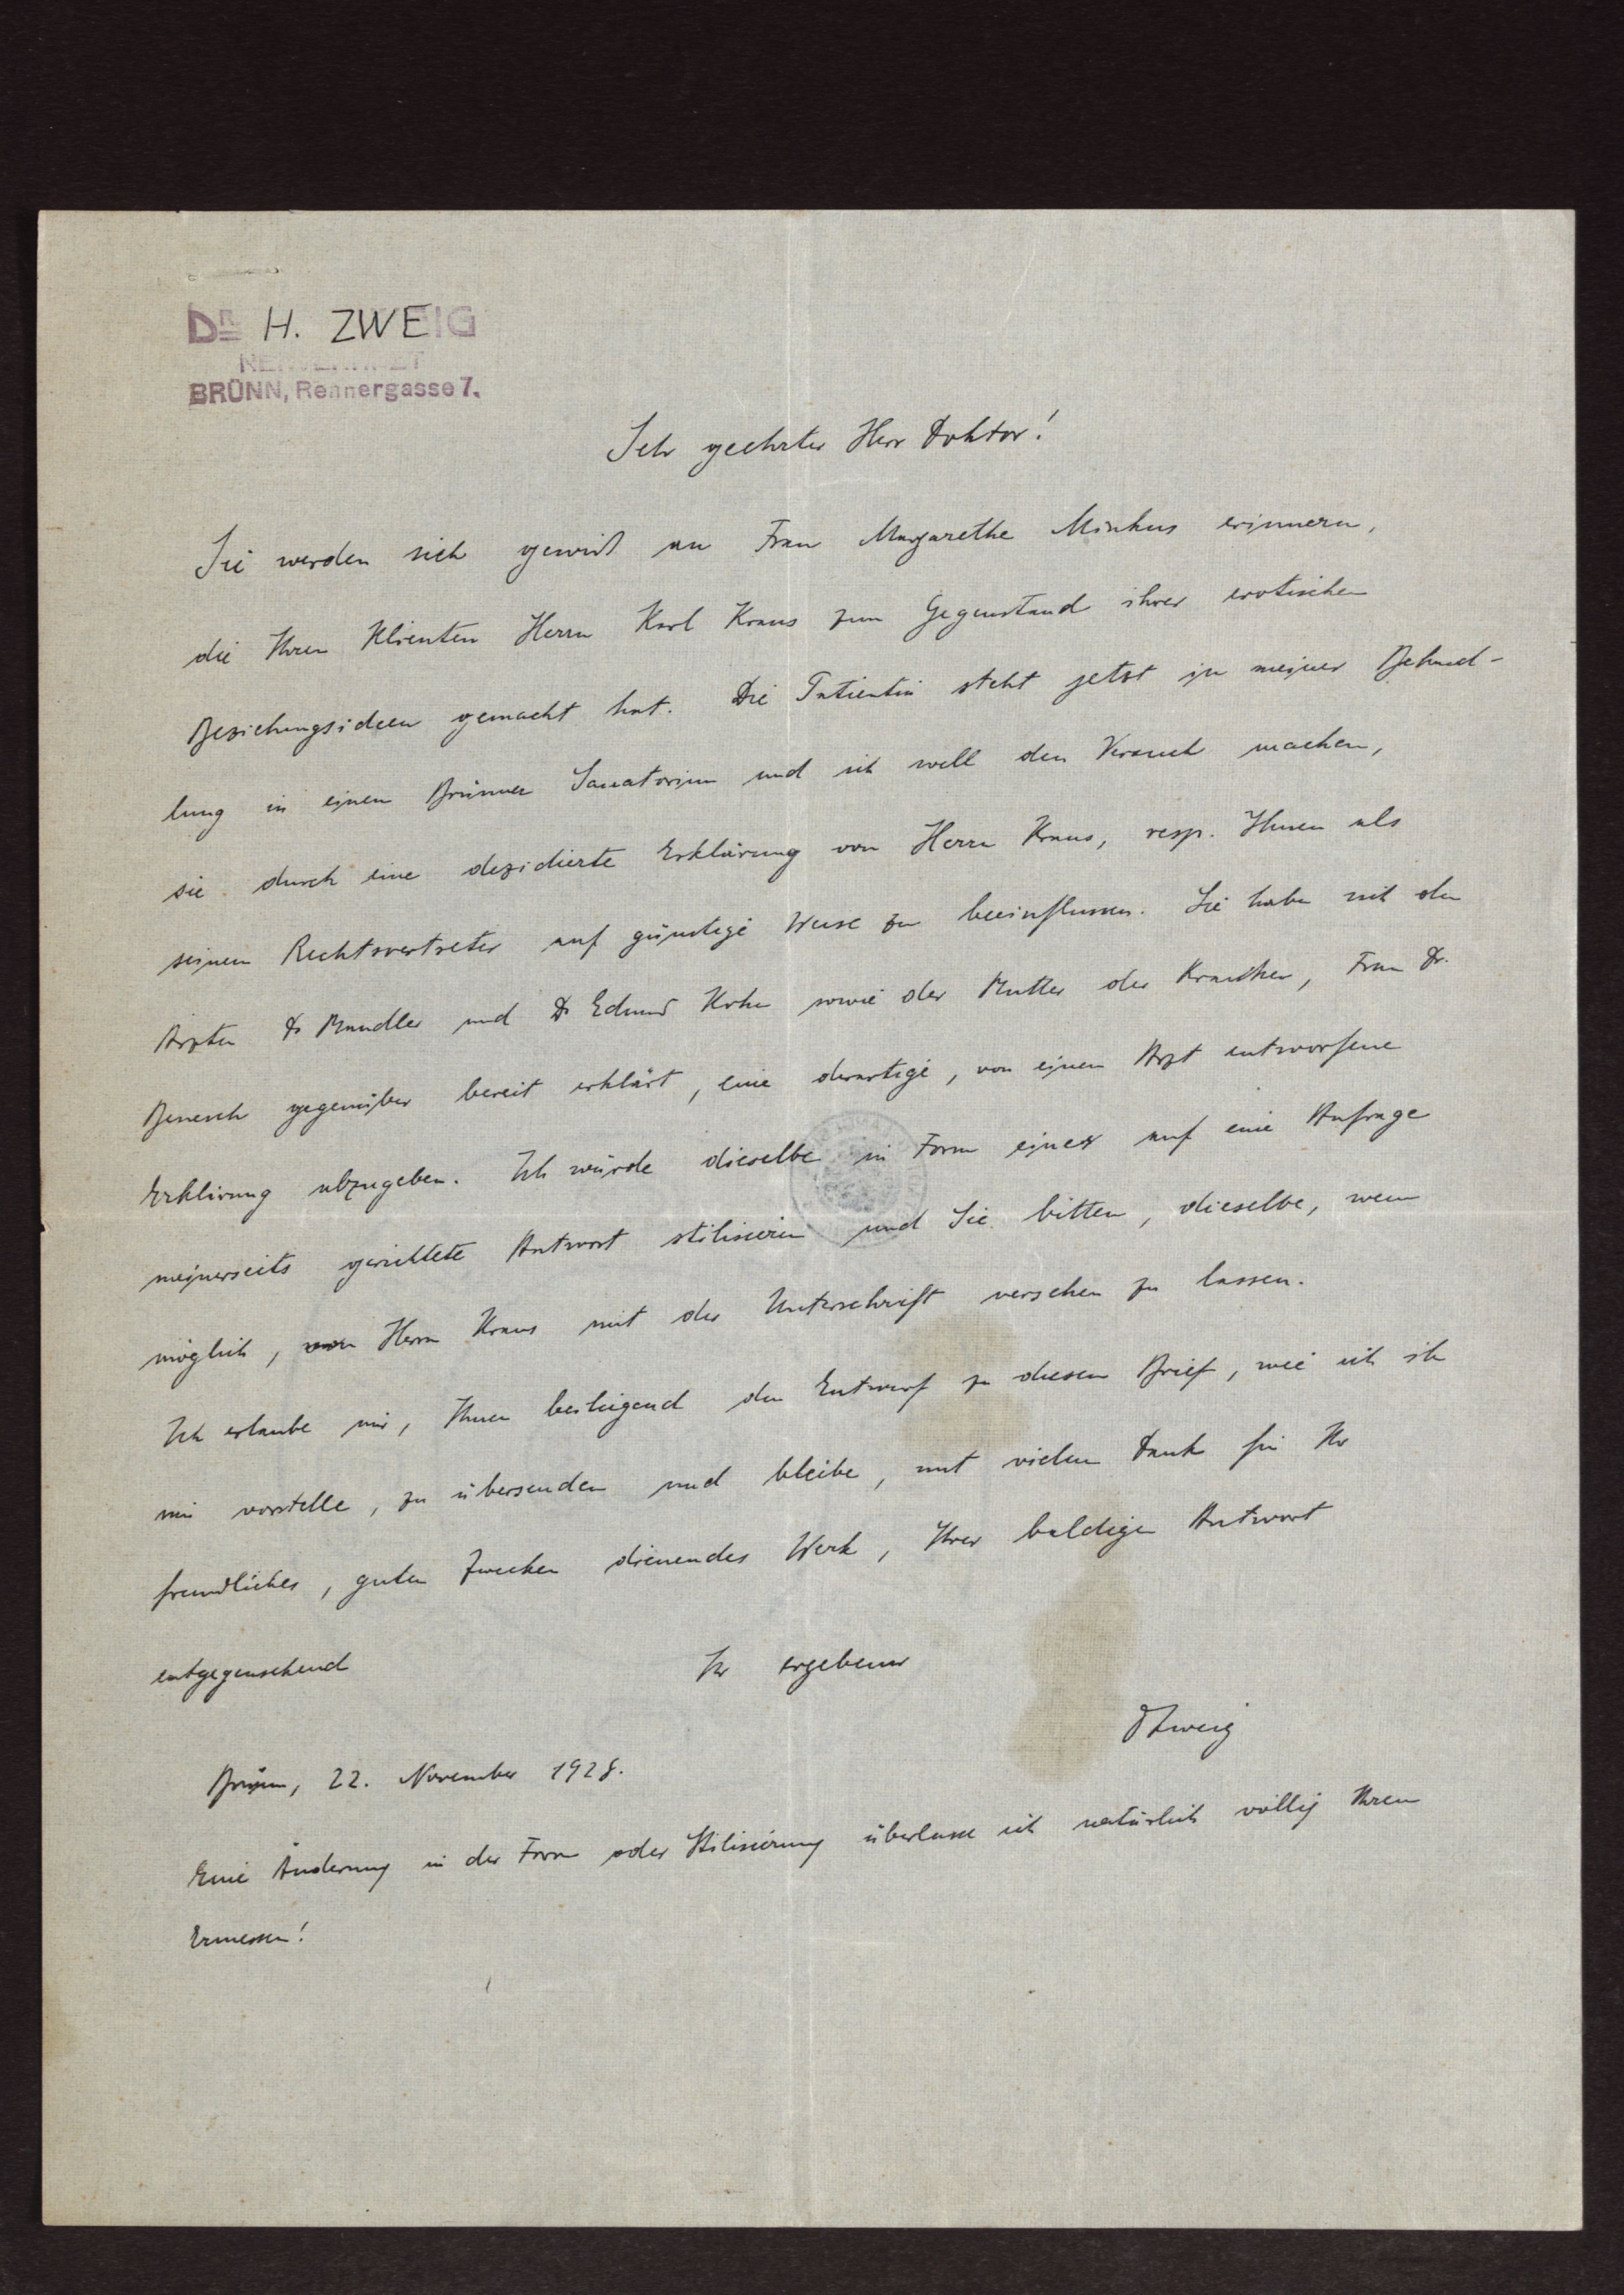 DR H. ZWEIG
NERVENARZT
BRÜNN, Rennergasse 7.
Sehr geehrter Herr Doktor!
Sie werden sich gewiß an Frau Margarethe Minkus erinnern,
die Ihren Klienten Herrn Karl Kraus zum Gegenstand ihrer erotischen
Beziehungsideen gemacht hat. Die Patientin steht jetzt in meiner Behand-
lung in einem Brünner Sanatorium und ich will den Versuch machen,
sie durch eine dezidierte Erklärung von Herrn Kraus, resp. Ihnen als
seinem Rechtsvertreter auf günstige Weise zu beeinflussen. Sie haben sich den
Ärzten Dr Mandler und Dr Edmund Kohn sowie der Mutter der Kranken, Frau Dr.
Benesch gegenüber bereit erklärt, eine derartige, von einem Arzt entworfene
Erklärung abzugeben. Ich würde dieselbe in Form einer auf eine Anfrage
meinerseits gerichtete Antwort stilisieren und Sie bitten, dieselbe, wenn
möglich, von Herrn Kraus mit der Unterschrift versehen zu lassen.
Ich erlaube mir, Ihnen beiliegend den Entwurf zu diesem Brief, wie ich ihn
mir vorstelle, zu übersenden und bleibe, mit vielem Dank für Ihr
freundliches, guten Zwecken dienendes Werk, Ihrer baldigen Antwort
entgegensehend Ihr ergebener
HZweig
Brünn, 22. November 1928.
Eine Änderung in der Form oder Stilisierung überlasse ich natürlich völlig Ihrem
Ermessen!